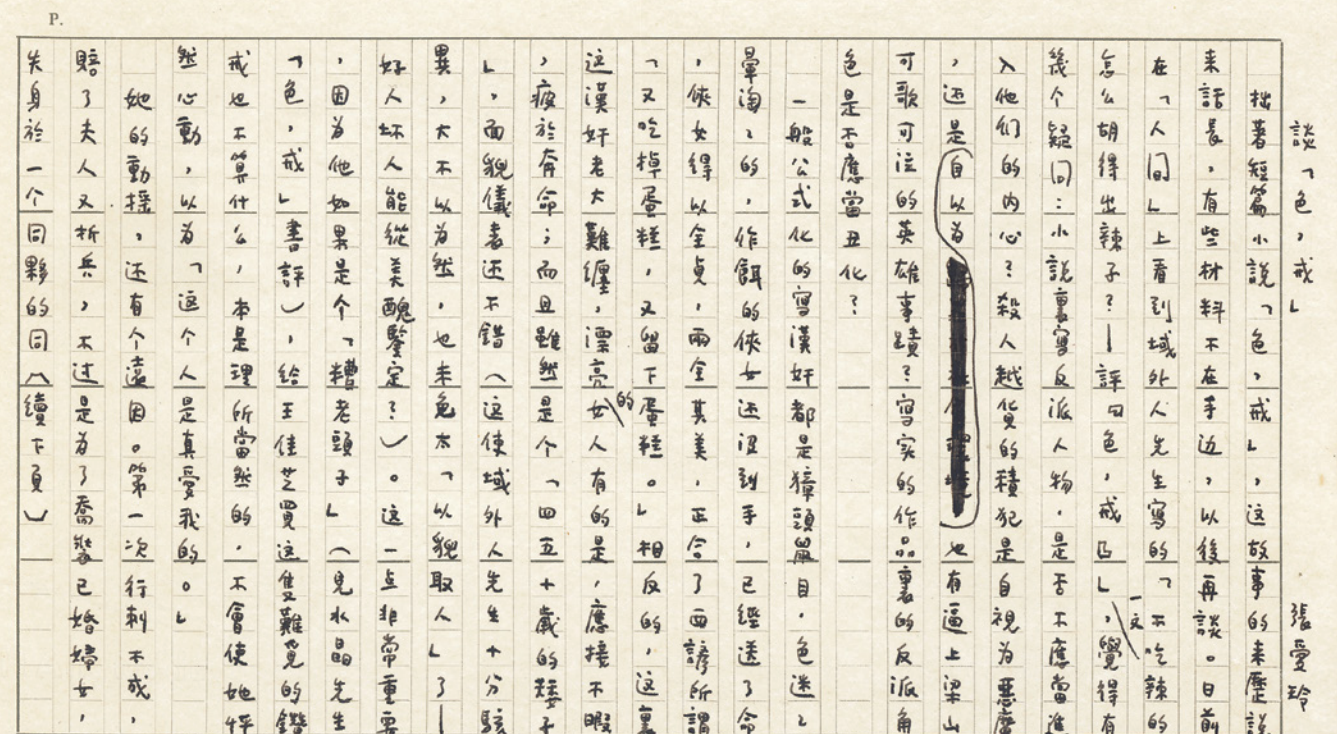 P.
談「色，戒」　張愛玲
拙著短篇小說「色，戒」，这故事的来歷説
来話長，有些材料不在手边，以後再談。日前
在「人间」上看到域外人先生寫的「不吃辣的
怎么胡得出辣子？—評『色，戒』」一文，覺得有
幾个疑问：小說裏寫反派人物，是否不應當進
入他们的内心？殺人越貨的積犯是自視为惡魔
，还是自以为也有逼上梁山
可歌可泣的英雄事蹟？寫实的作品裏的反派角
色是否應當丑化？
一般公式化的寫漢奸都是獐頭鼠目，色迷ミ
暈淘ミ的，作餌的俠女还沒到手，已經送了命
，俠女得以全貞，兩全其美，正合了西諺所謂
「又吃掉蛋糕，又留下蛋糕。」相反的，这裏
这漢奸老大難纏，漂亮的女人有的是，應接不暇
，疲於奔命；而且雖然是个「四五十歲的矮子
」，面貌儀表还不錯（这使域外人先生十分駭
異，大不以为然，也未免太「以貌取人」了—
好人坏人能從美醜鑒定？）。这一点非常重要
，因为他如果是个「糟老頭子」（見水晶先生
「色，戒」書評），給王佳芝買这隻難覓的鑽
戒也不算什么，本是理所當然的，不會使她怦
然心動，以为「这个人是真愛我的。」
她的動摇，还有个遠因。第一次行刺不成，
賠了夫人又折兵，不过是为了喬裝已婚婦女，
失身於一个同夥的同（續下頁）